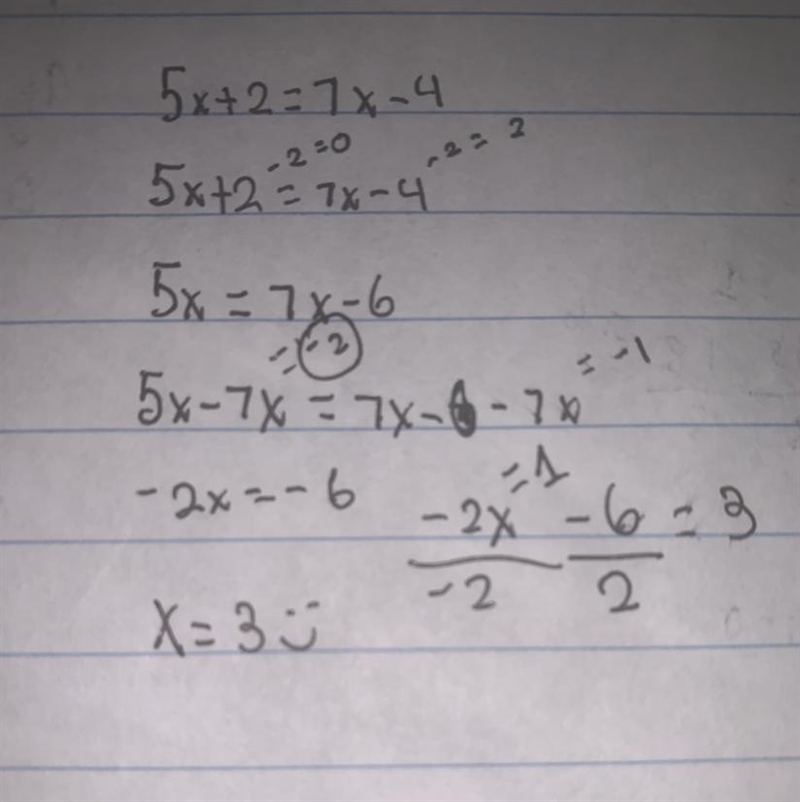 5x+2=7x-4
-2=0 -2= 2
5x+2=7x-4
5x=7x-6
=-2 =-1
5x-7x=7x-6-7x
-2x=-6
-2x=1 -6=3
-2 2
x=3 :)